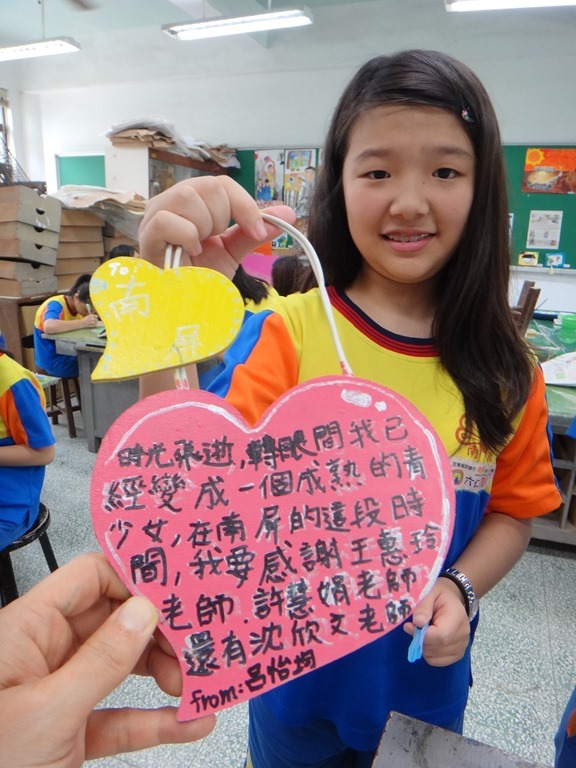 To:
南
屏
時光飛逝,轉眼間我已
經變成一個成熟的青
少女,在南屏的這段時
間,我要感謝王惠玲
老師.許慧娟老師
還有沈欣文老師
from:呂怡均